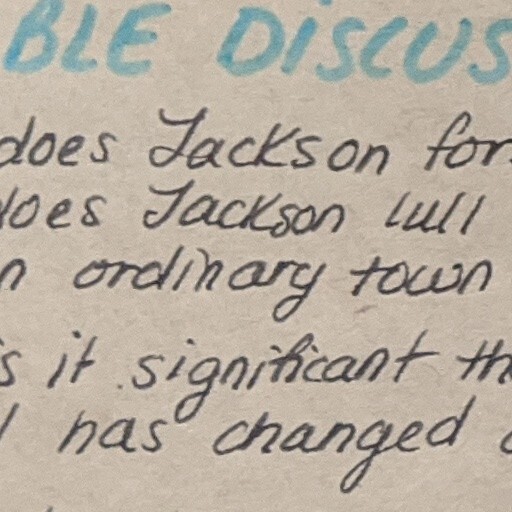 BLE DISCUS
does Jackson for
does Jackson lull
n ordinary town
s it significant th
l has changed